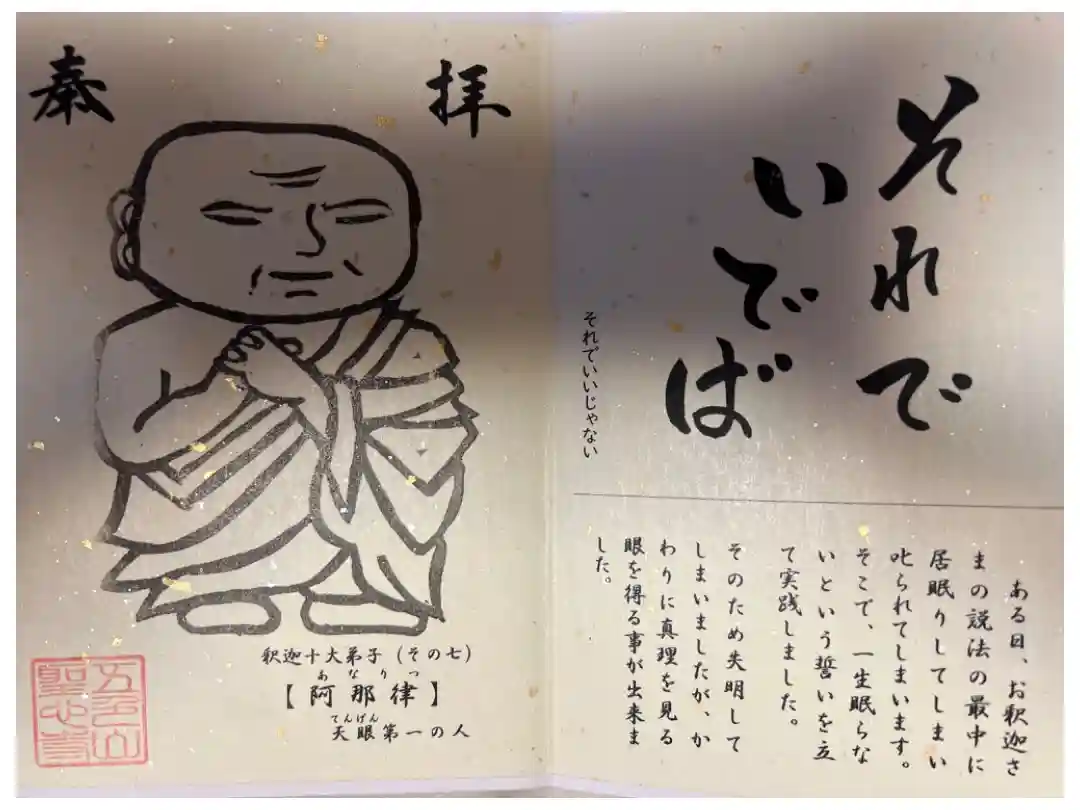 それで
いでば
それでいいじゃない
ある日、お釈迦さ
まの説法の最中に
居眠りしてしまい
叱られてしまいます。
そこで、一生眠らな
いという誓いを立
て実践しました。
そのため失明して
しまいましたが、か
わりに真理を見る
眼を得る事が出来ま
した。
奉拝
釈迦十大弟子（その七）
あなりつ
【阿那律】
てんげん
天眼第一の人